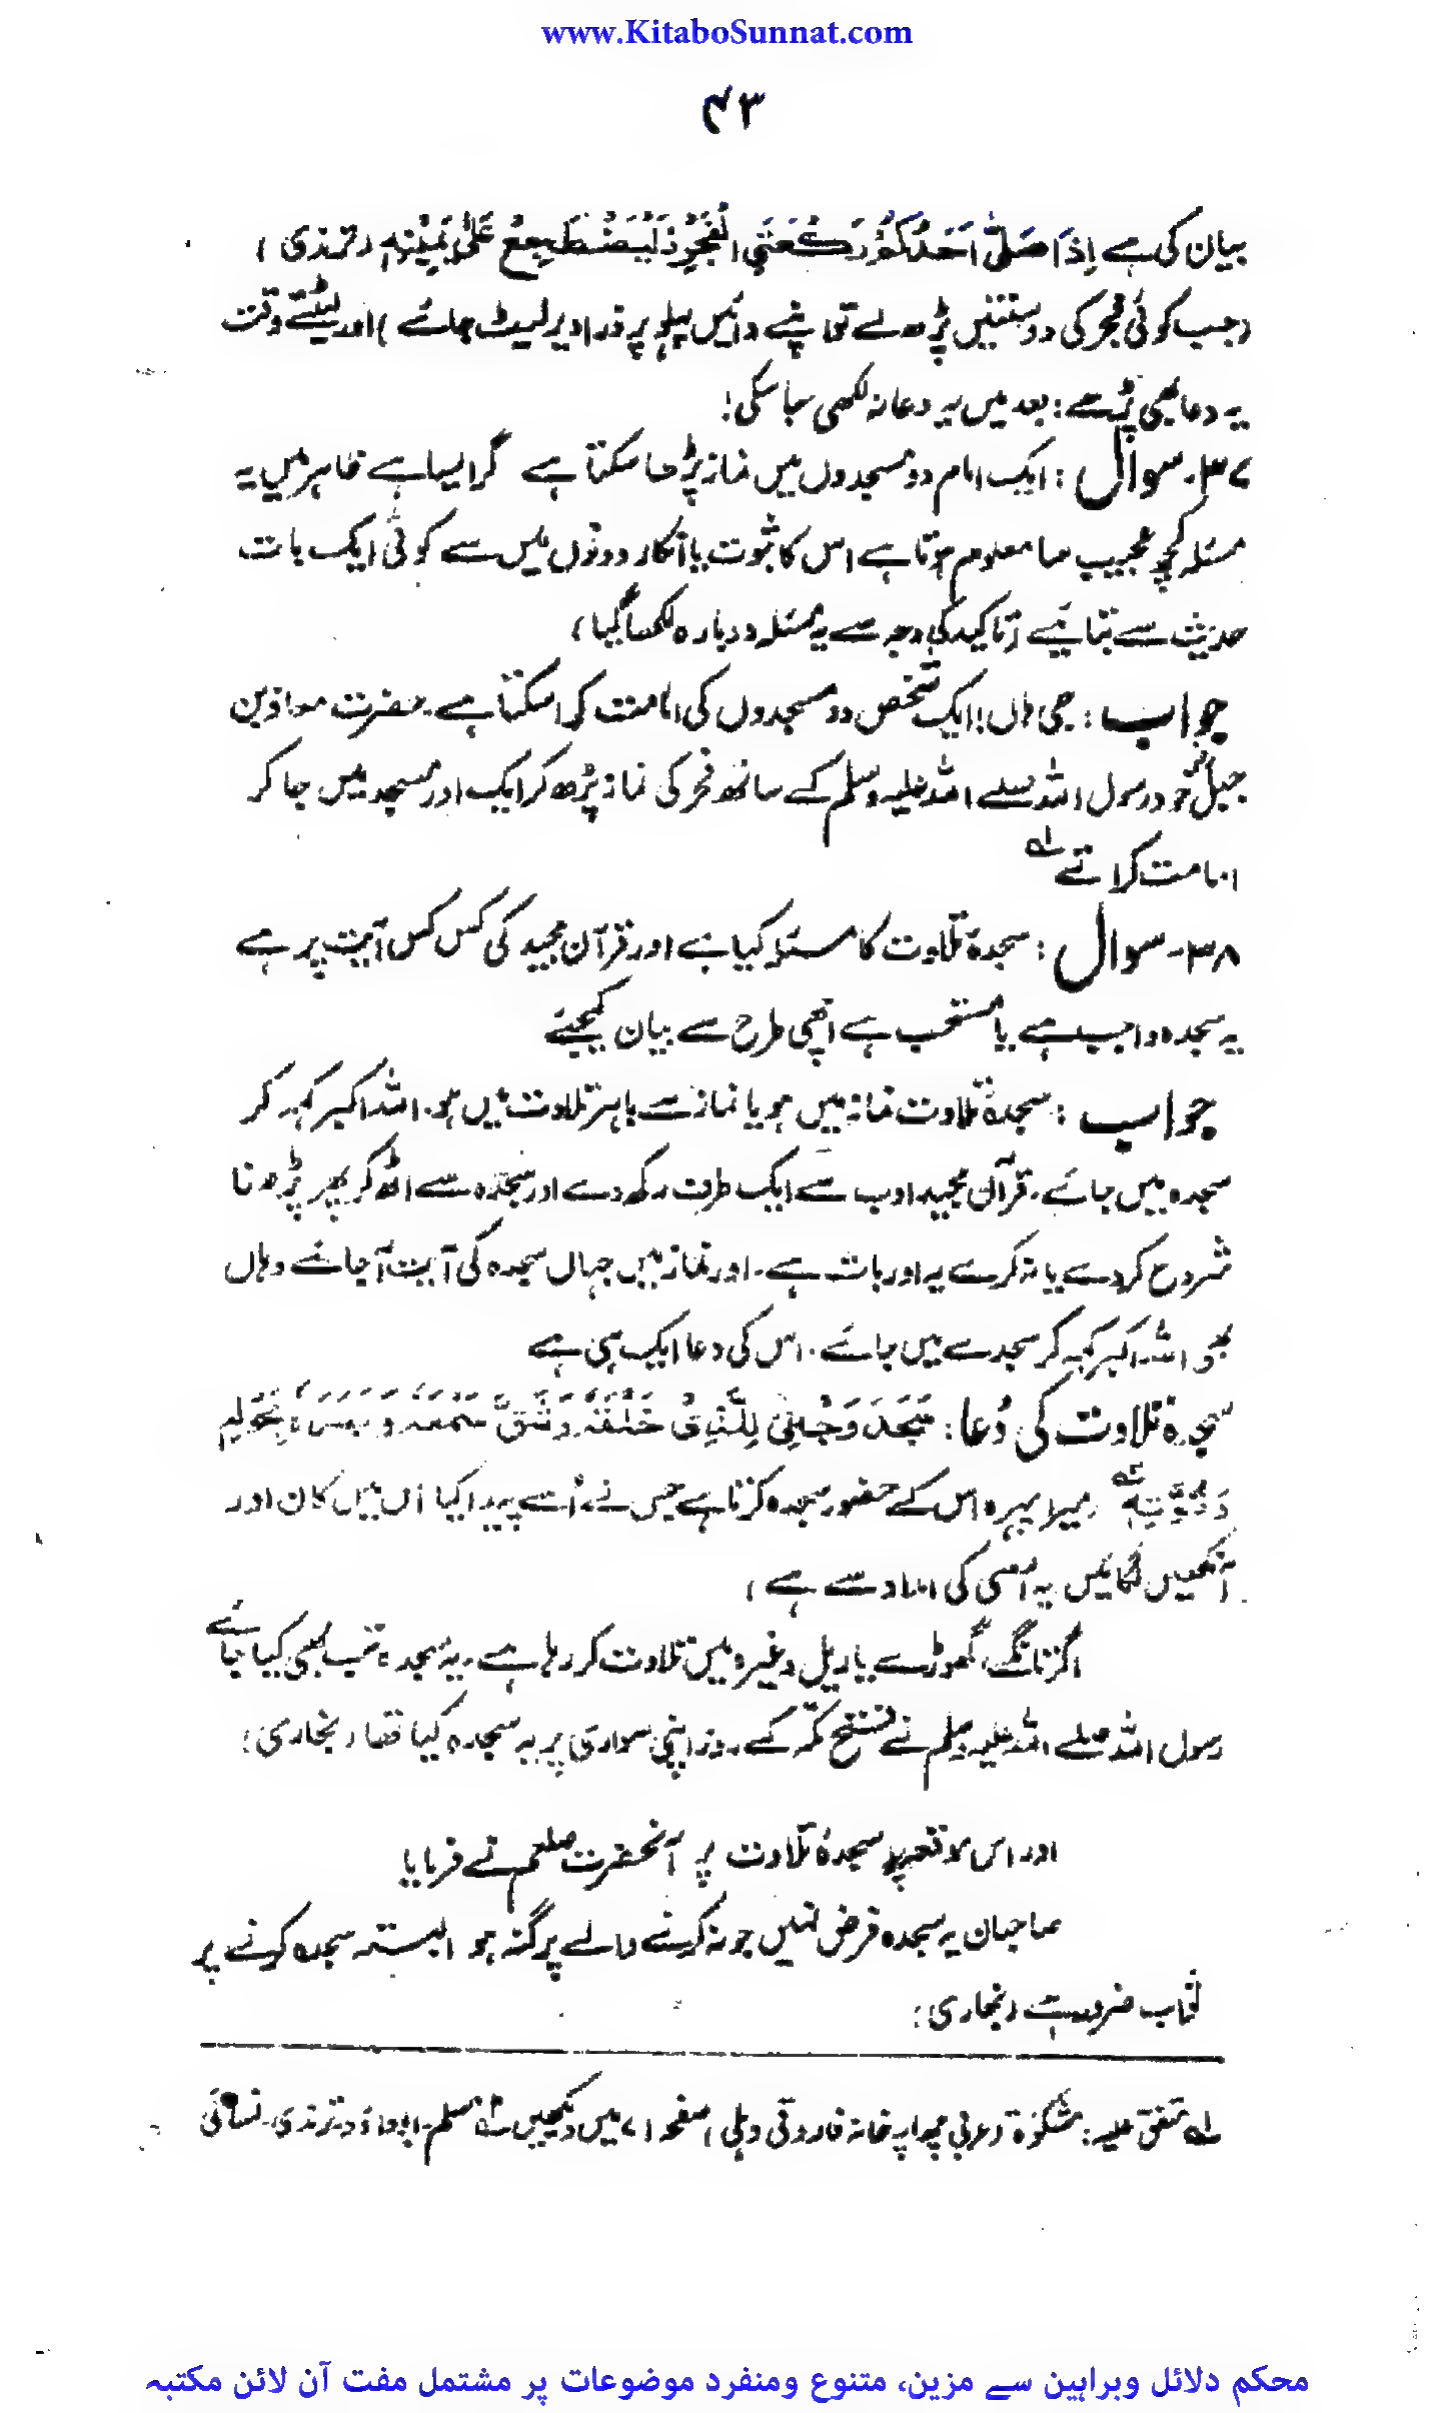 www.KitaboSunnat.com
۴۳
بیان کی ہے اِذَا صَلّٰی اَحَدُكُمْ رَكْعَتَیِ الْفَجْرِ فَلْیَضْطَجِعْ عَلٰی یَمِیْنِهٖ (ترمذی)
(جب کوئی فجر کی دو سنتیں پڑھ لے تو اپنے دائیں پہلو پر ذرا دیر لیٹ جائے) اور لیٹتے وقت
یہ دعا بھی پڑھے: بعد میں یہ دعا نہ لکھی جا سکی!
۳۷۔ سوال: ایک امام دو مسجدوں میں نماز پڑھا سکتا ہے گر ایسا ہے ظاہر میں یہ
مسئلہ کچھ عجیب سا معلوم ہوتا ہے اس کا ثبوت یا انکار دونوں میں سے کوئی ایک بات
حدیث سے بتائیے (تاکید کی وجہ سے یہ مسئلہ دوبارہ لکھا گیا)
جواب: جی ہاں! ایک شخص دو مسجدوں کی امامت کرا سکتا ہے۔ حضرت معاذ بن
جبلؓ خود رسول اللہ صلے اللہ علیہ وسلم کے ساتھ فجر کی نماز پڑھ کر ایک اور مسجد میں جا کر
امامت کراتے لے
۳۸۔ سوال: سجدۂ تلاوت کا مسئلہ کیا ہے اور قرآن مجید کی کس کس آیت پر ہے
یہ سجدہ واجب ہے یا مستحب ہے اچھی طرح سے بیان کیجئے
جواب: سجدۂ تلاوت نماز میں ہو یا نماز سے باہر تلاوت میں ہو۔ اللہ اکبر کہہ کر
سجدہ میں جائے۔ قرآن مجید ادب سے ایک طرف رکھ دے اور سجدہ سے اٹھ کر پھر پڑھنا
شروع کر دے یا نہ کرے یہ اور بات ہے۔ اور نماز میں جہاں سجدہ کی آیت آ جائے وہاں
بھی اللہ اکبر کہہ کر سجدے میں جائے۔ اس کی دعا ایک ہی ہے
سجدۂ تلاوت کی دُعا: سَجَدَ وَجْهِیَ لِلَّذِیْ خَلَقَهٗ وَشَقَّ سَمْعَهٗ وَبَصَرَهٗ بِحَوْلِهٖ
وَقُوَّتِهٖ (میرا چہرہ اس کے حضور سجدہ کرتا ہے جس نے اُسے پیدا کیا اس میں کان اور
آنکھیں لگائیں یہ اُسی کی امداد سے ہے)
اگر تانگے، گھوڑے یا ریل وغیرہ میں تلاوت کر رہا ہے۔ یہ سجدہ تب بھی کیا جائے
رسول اللہ صلے اللہ علیہ وسلم نے فتح مکہ کے روز اپنی سواری پر یہ سجدہ کیا تھا (بخاری)
اور اس موقعہ پر سجدۂ تلاوت پر آنحضرت صلعم نے فرمایا
صاحبان یہ سجدہ فرض نہیں جو نہ کرنے والے پر گنہ ہو البتہ سجدہ کرنے پر
ثواب ضرور ہے (بخاری)
لے متفق علیہ: مشکوٰۃ (عربی چھاپہ خانہ فاروقی دہلی) صفحہ ۷۱ میں دیکھیں مسلم۔ ابوداؤد ترمذی۔ نسائی
محکم دلائل وبراہین سے مزین، متنوع ومنفرد موضوعات پر مشتمل مفت آن لائن مکتبہ